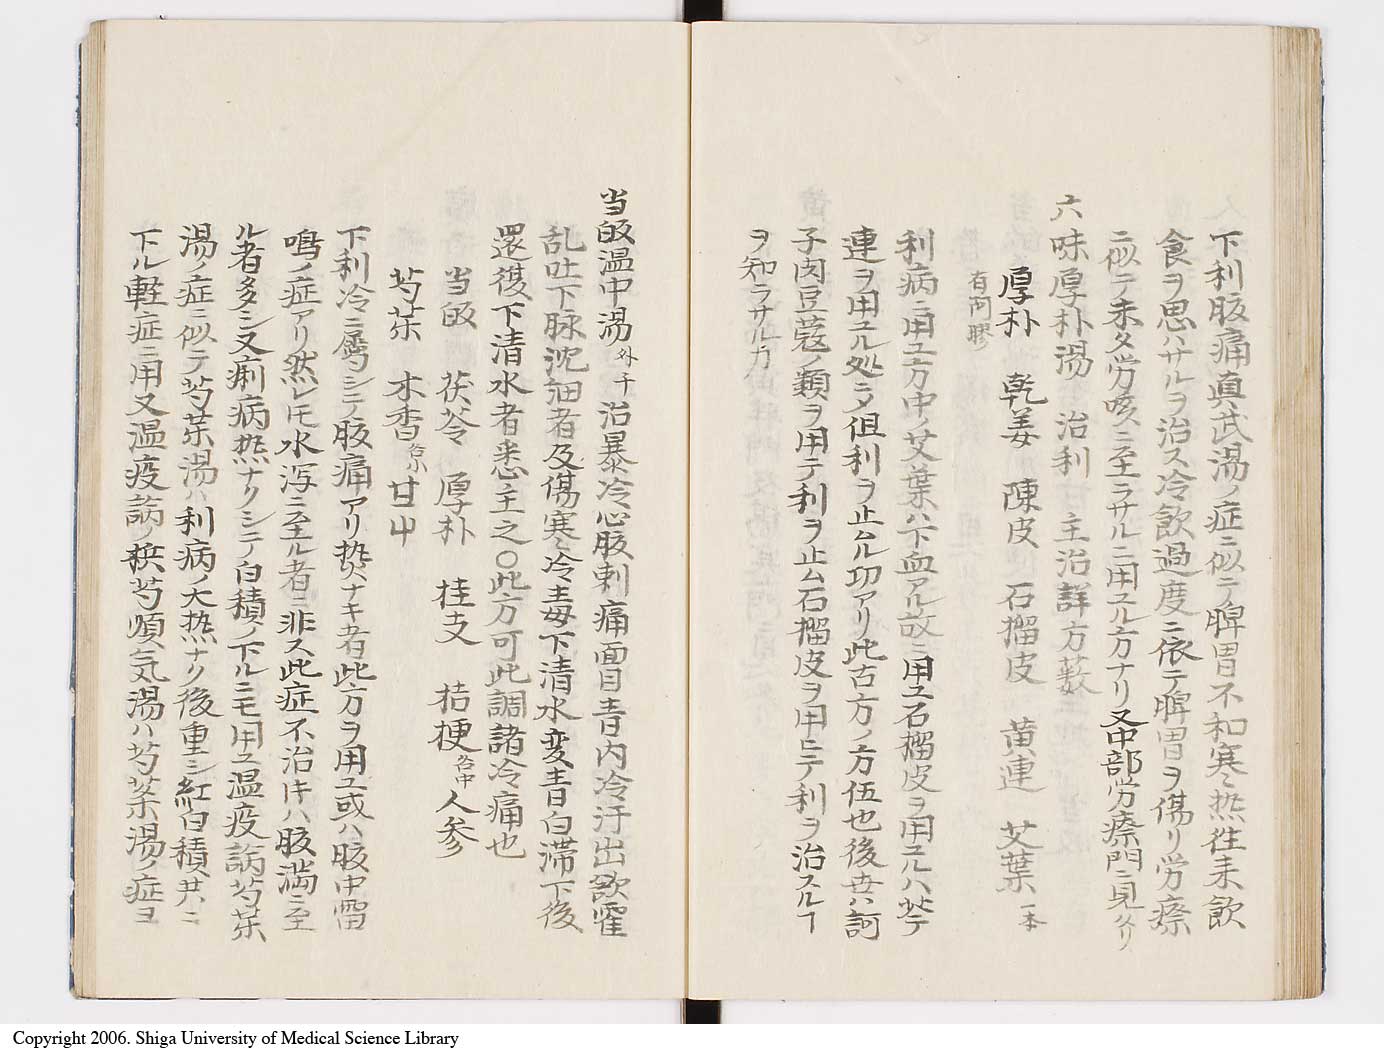 下利腹痛真武湯ノ症ニ似テ脾胃不和寒々熱往来飲
食ヲ思ハサルヲ治ス冷飲過度ニ依テ脾胃ヲ傷リ労瘵
ニ似テ未タ労咳ニ至ラサルニ用ユル方ナリ又中部労瘵門ニ見タリ
六味厚朴湯 治利 主治詳方藪
厚朴 乾姜 陳皮 石榴皮 黄連 艾葉 一本
有阿膠
利病ニ用ユ方中ノ艾葉ハ下血アル故ニ用ユ石榴皮ヲ用ユルハ
連ヲ用ユル処ニメ但利ヲ止ムル功アリ此古方ノ方伍也後世ハ訶
子肉豆蔻ノ類ヲ用テ利ヲ止ム石榴皮ヲ用ヒテ利ヲ治スルヿ
ヲ知ラサルカ
当皈温中湯 外千 治暴冷心腹刺痛面目青肉冷汗出欲霍
乱吐下脉沈細者及傷寒冷毒下清水変青白滞下後
還復下清水者悉主之〇此方可此調諸冷痛也
当皈 茯苓 厚朴 桂支 桔梗 各中 人参
芍薬 木香 各小 甘屮
下利冷ニ属シテ腹痛アリ熱ナキ者此方ヲ用ユ或ハ腹中雷
鳴ノ症アリ然レ𪜈水泻ニ至ル者ニ非ス此症不治キハ腹満ニ至
ル者多シ又痢病熱ナクシテ白積ノ下ルニモ用ユ温疫論芍薬
湯ノ症ニ似テ芍薬湯ハ利病ノ大熱ナク後重シ紅白積共ニ
下ル軽症ニ用又温疫論ノ槟芍順気湯ハ芍薬湯ノ症ヨ
Copyright 2006. Shiga University of Medical Science Library